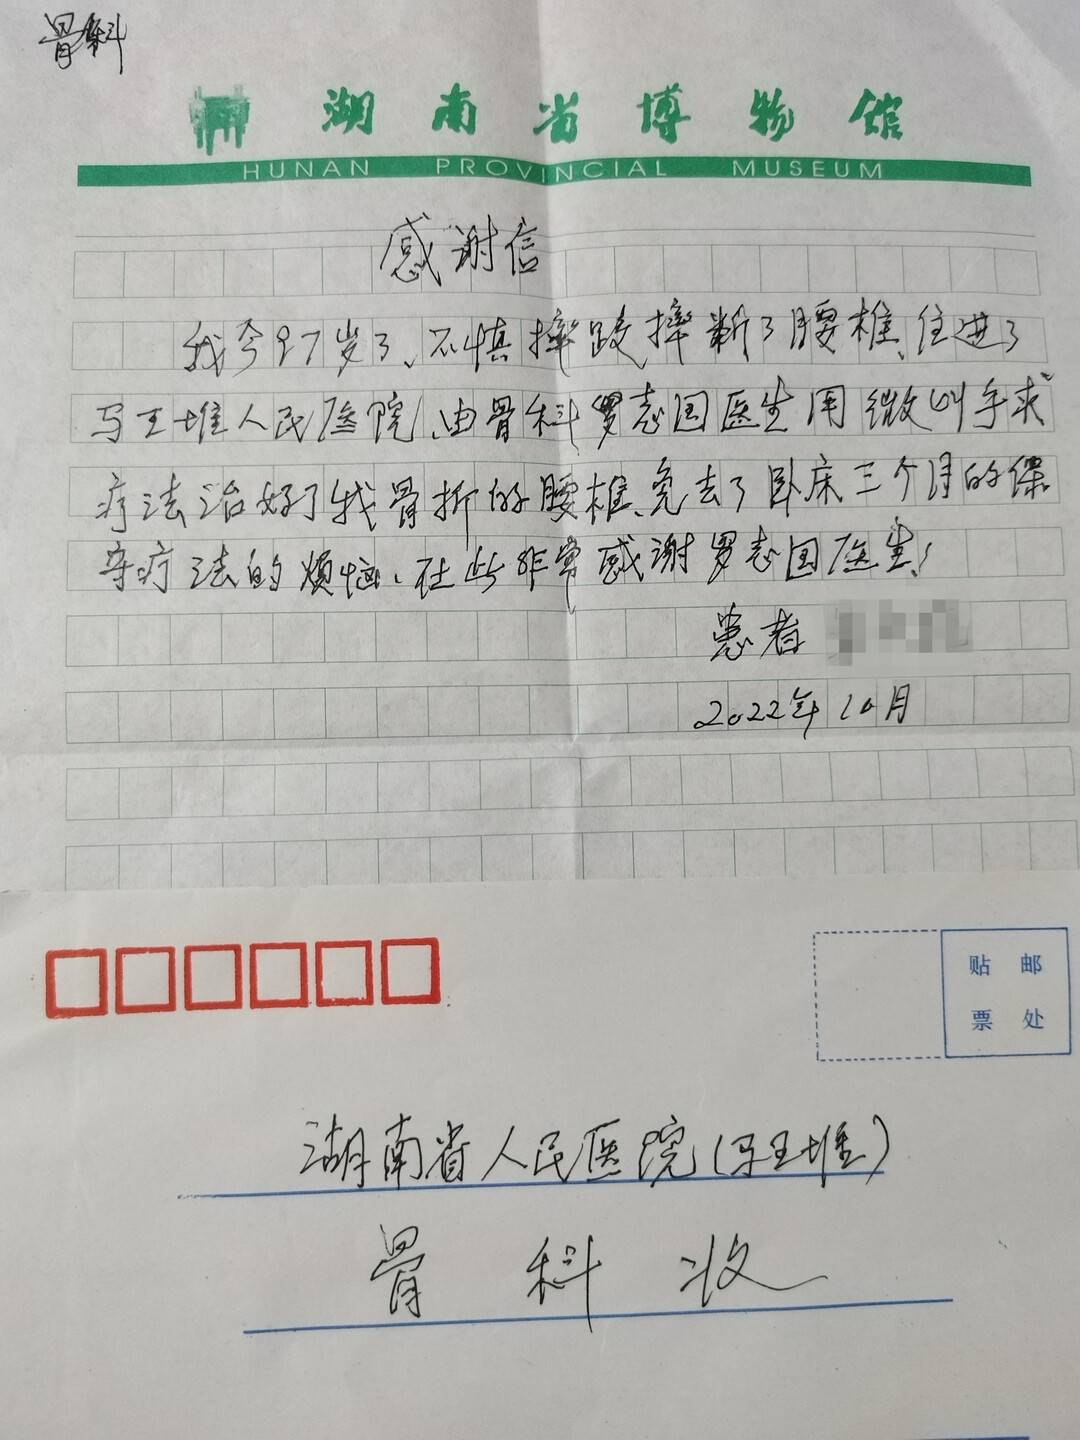 骨科
湖南省博物馆
HUNAN PROVINCIAL MUSEUM
感谢信
我今97岁了、不慎摔跤摔断了腰椎、住进了
马王堆人民医院、由骨科罗志国医生用微创手术
疗法治好了我骨折的腰椎、免去了卧床三个月的保
守疗法的烦恼、在此非常感谢罗志国医生!
患者
2022年10月
贴邮
票处
湖南省人民医院(马王堆)
骨科收